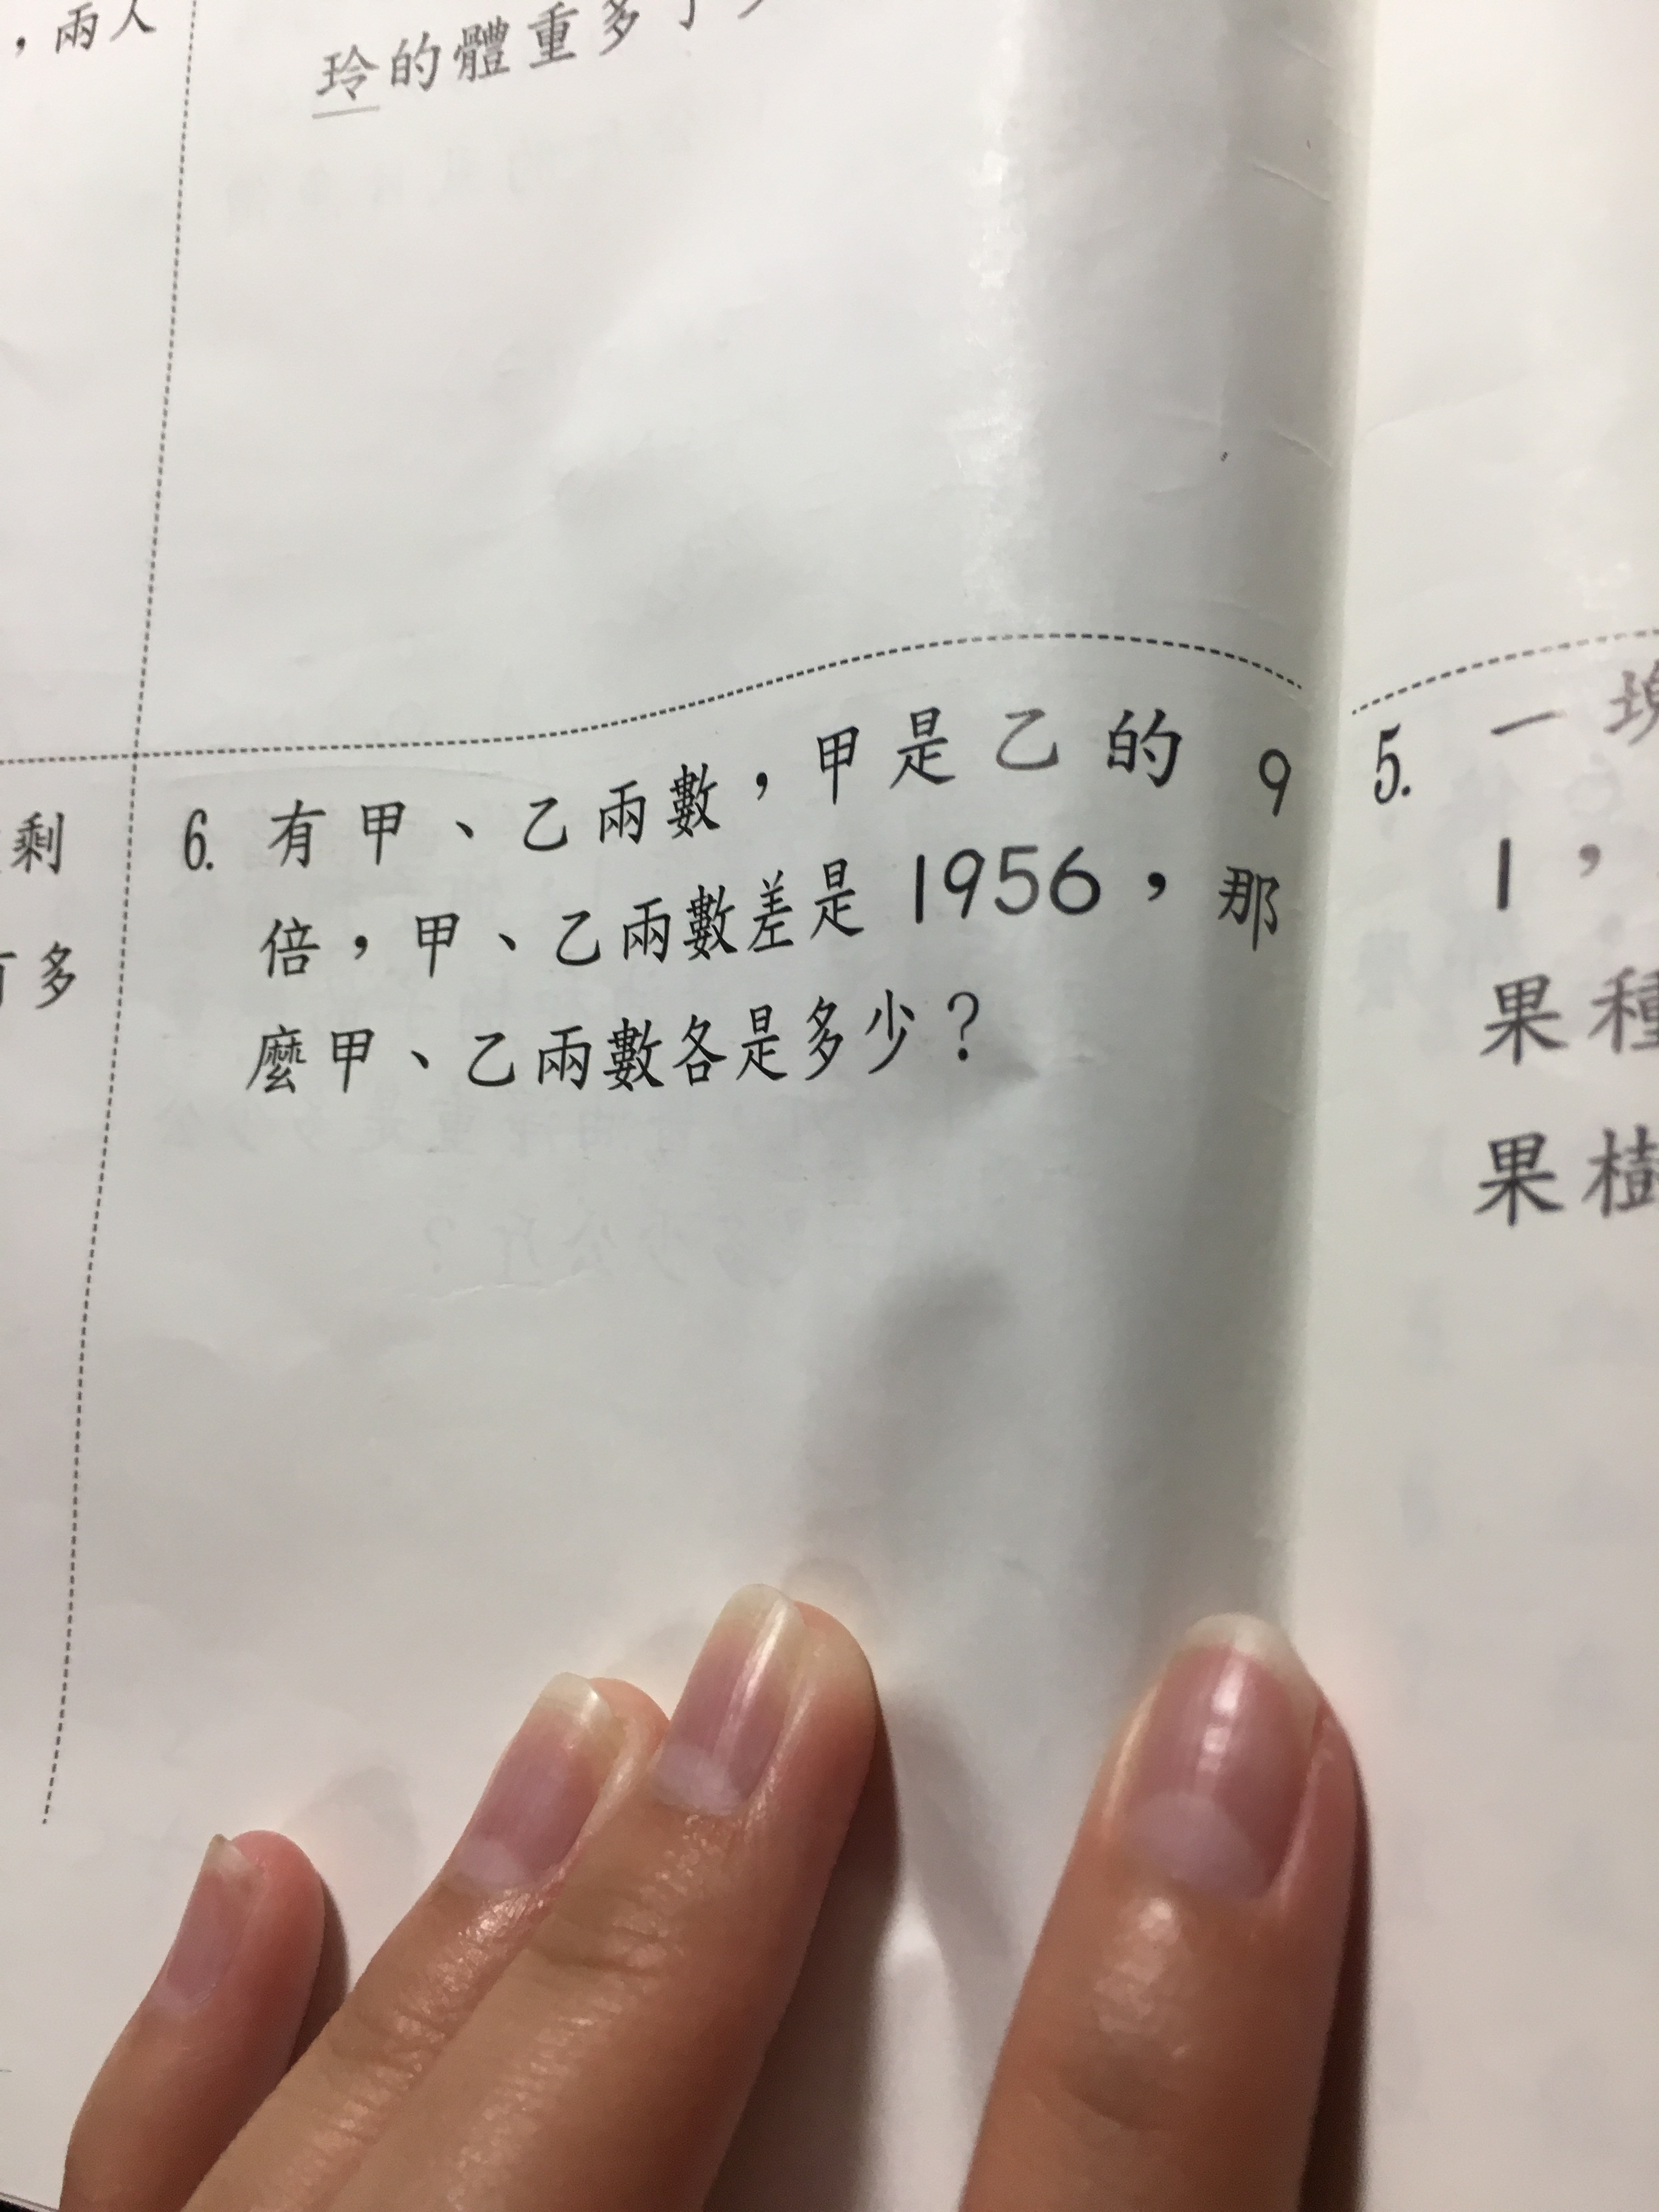 ，兩人
玲的體重多
剩
多
6. 有甲、乙兩數，甲是乙的 9
倍，甲、乙兩數差是 1956，那
麼甲、乙兩數各是多少？
5. 一塊
1，
果種
果樹